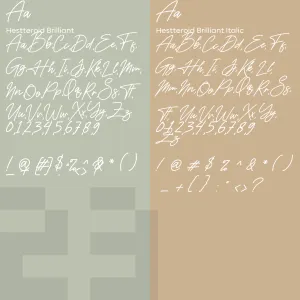 Aa
Hestterard Brilliant
Aa Bb Cc Dd Ee Ff
Gg Hh Ii Jj Kk Ll Mm
Nn Oo Pp Qq Rr Ss Tt
Uu Vv Ww Xx Yy Zz
0123456789
! @ # $ % ^ & * ( )
Aa
Hestterard Brilliant Italic
Aa Bb Cc Dd Ee Ff
Gg Hh Ii Jj Kk Ll
Mm Nn Oo Pp Qq Rr Ss
Tt Uu Vv Ww Xx Yy
Zz
0123456789
! @ # $ % ^ & * ( )
_ + { } : " < > ?